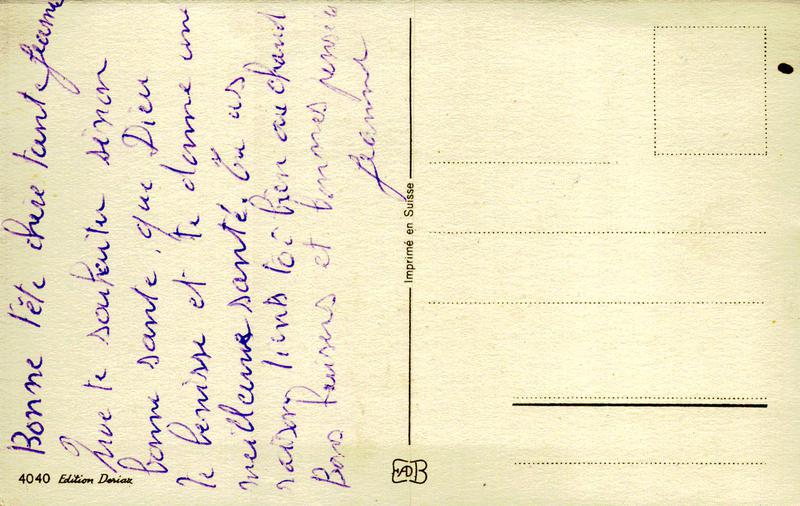 Bonne fête chère tante Jeanne
Que te souhaiter sinon
bonne santé, que Dieu
te bénisse et te donne une
meilleure santé. Tu as
raison tiens toi bien au chaud
Bons baisers et bonnes pensées
Jeanne
4040 Edition Deriaz
Imprimé en Suisse